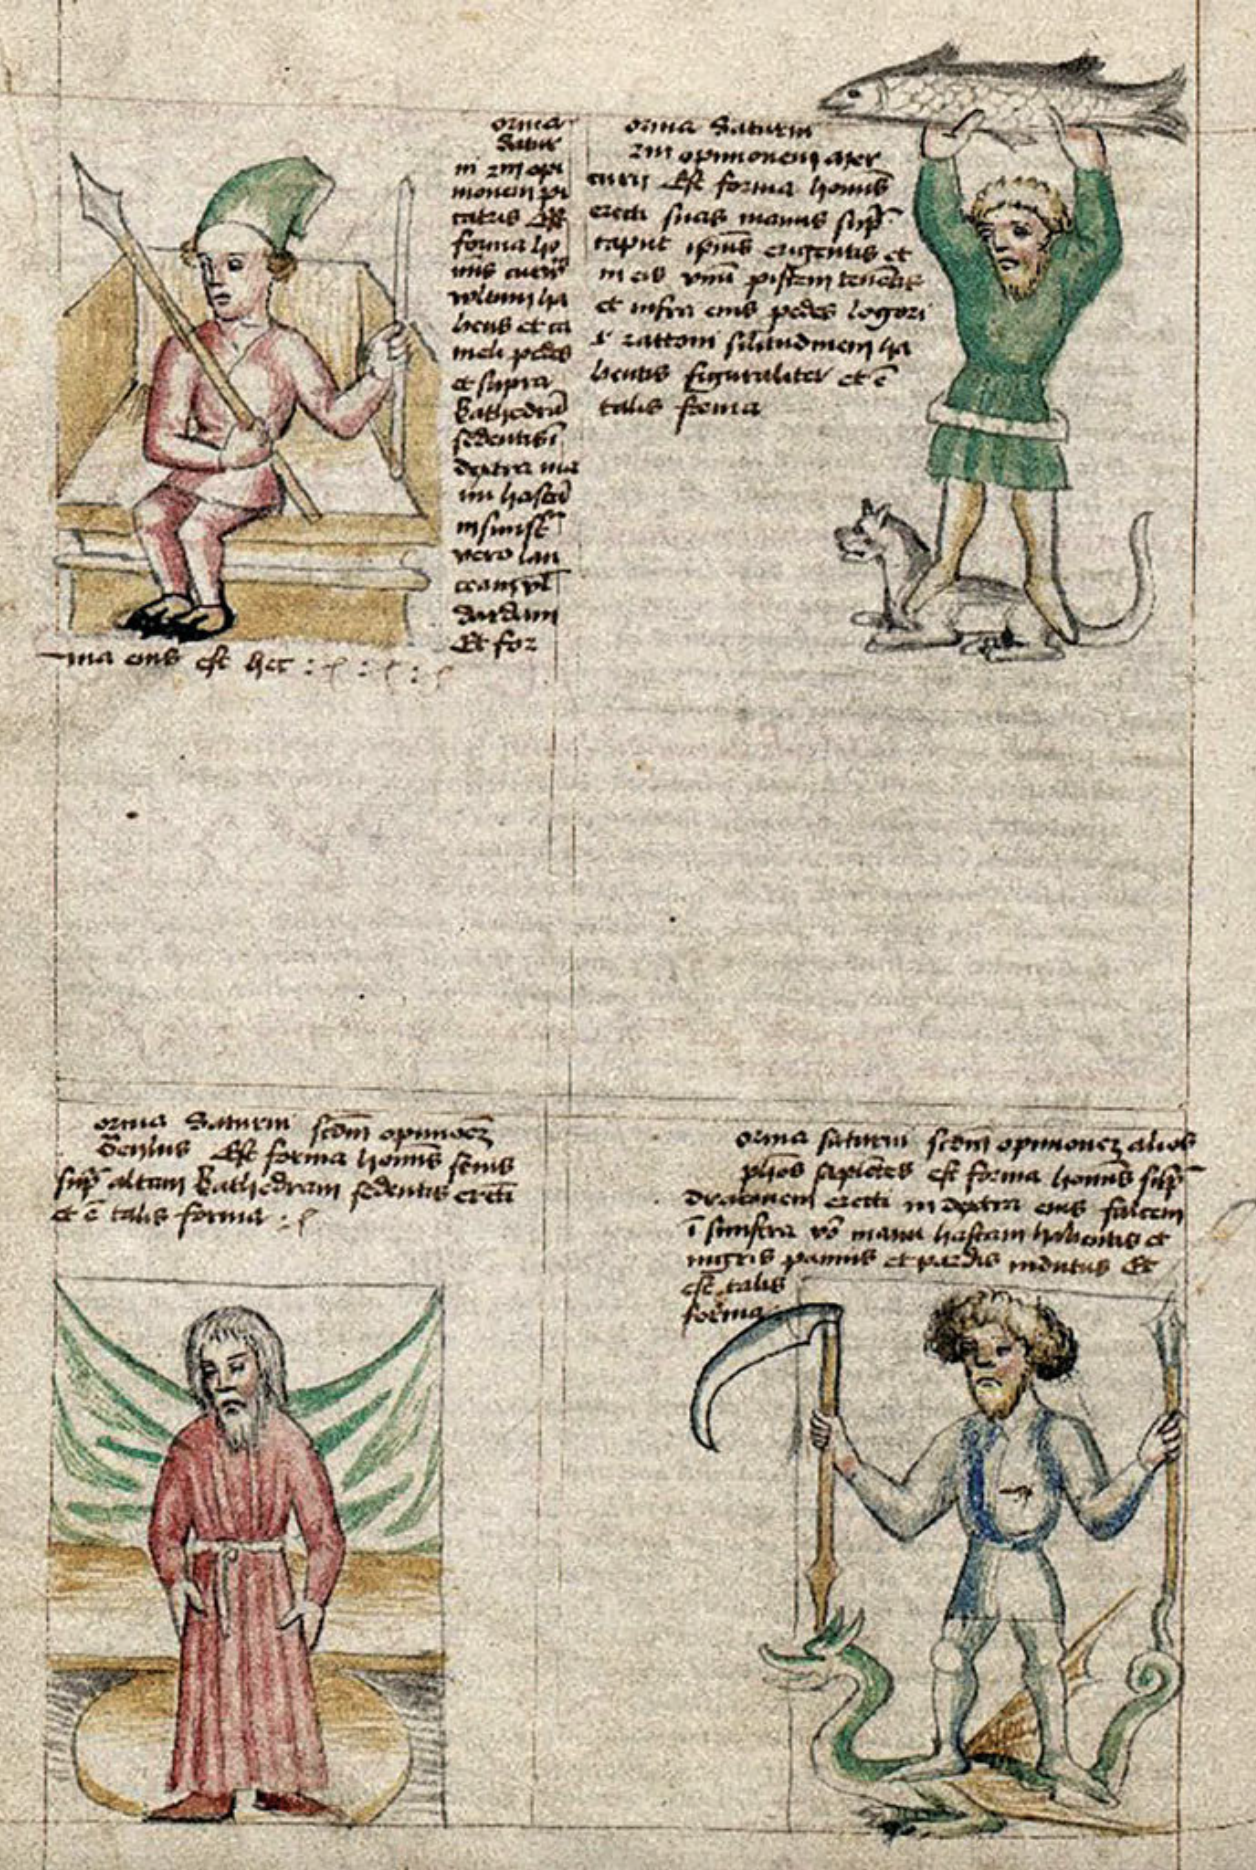 orma
Satur
ni zm opi
nionem pi
catris Est
forma ho
mis cuerv
voltum ha
bens et ca
meli pedes
et supra
kathedra
sedentis i
dextra ma
nu hastā
in sinist
vero lan
ceam vl
dardum
Et for
ma eius est hec
orma Saturni
zm opinionem mer
curii Est forma homīs
erecti suas manus sup
caput ipius erigentis et
in eis vnū piscem tenētis
et infra eius pedes logori
silitudinem ha
bentis figuraliter et ē
talis forma
orma Saturni scdm opinioēz
Beylus Est forma homīs senis
sup altam kathedram sedentis erecti
et ē talis forma
orma saturni scdm opinionez alios
phos sapiētes est forma homīs sup
draconem erecti in dextra eius falcem
ī sinistra vō manu hastam habentis et
nigris pannis et pardis indutus Et
est talis
forma